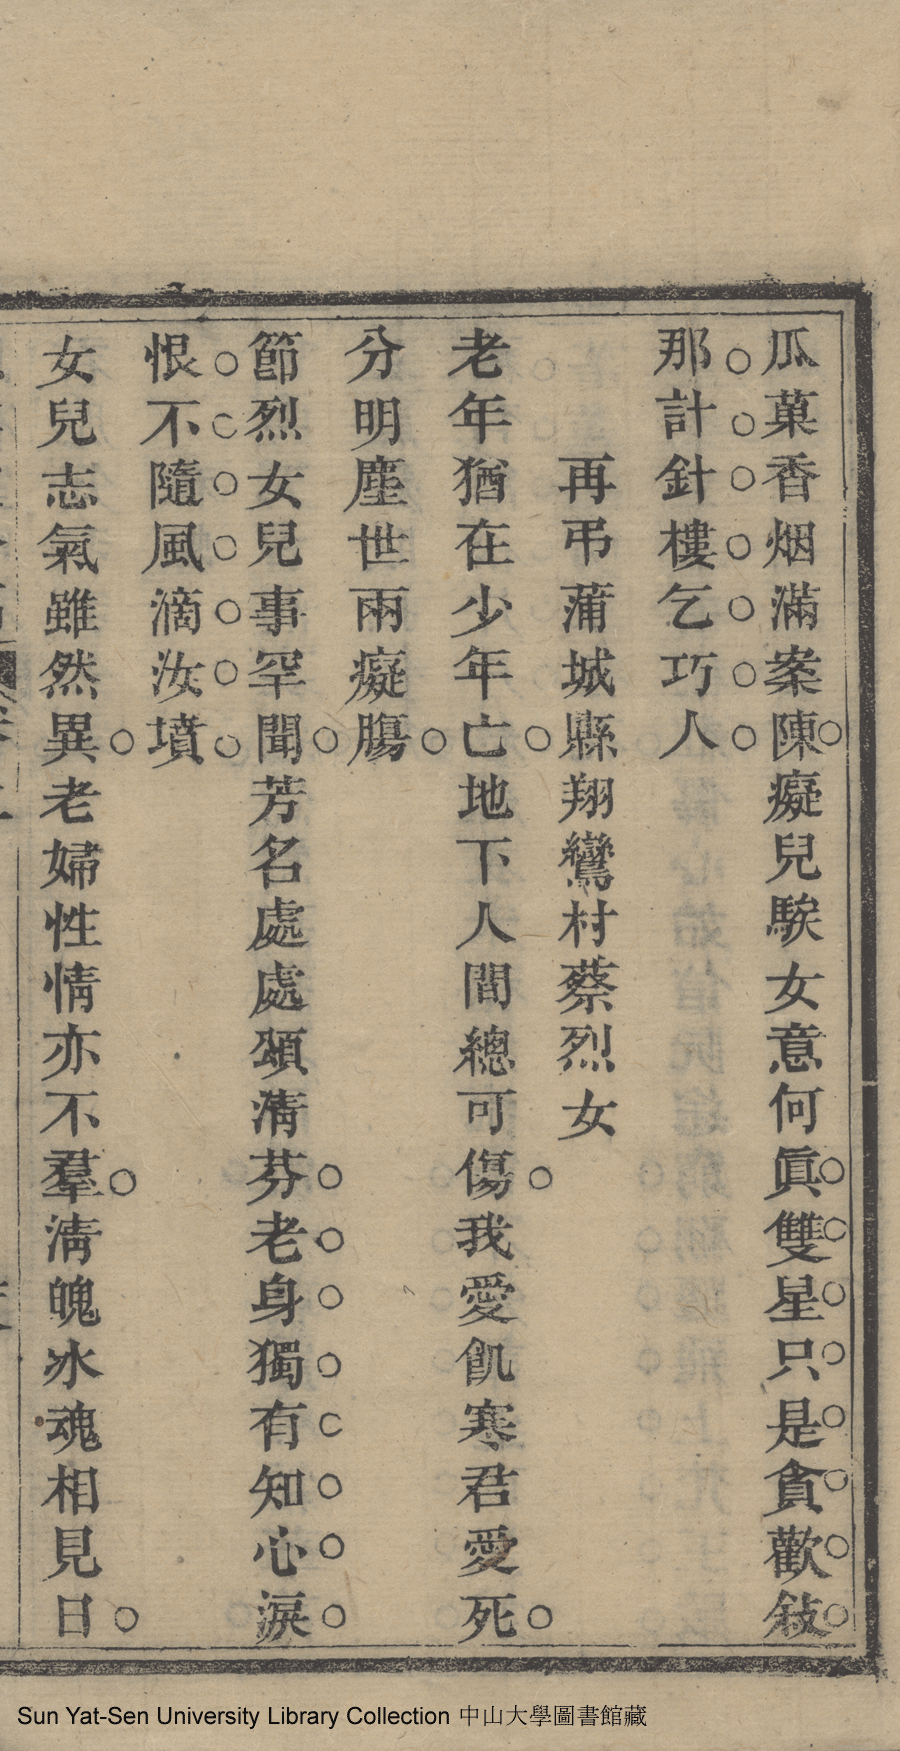 瓜菓香烟滿案陳癡兒騃女意何眞雙星只是貪歡敍
那計針樓乞巧人
再弔蒲城縣翔鸞村蔡烈女
老年猶在少年亡地下人間總可傷我愛飢寒君愛死
分明塵世兩癡腸
節烈女兒事罕聞芳名處處頌清芬老身獨有知心淚
恨不隨風滴汝墳
女兒志氣雖然異老婦性情亦不羣淸魄氷魂相見日
Sun Yat-Sen University Library Collection 中山大學圖書館藏